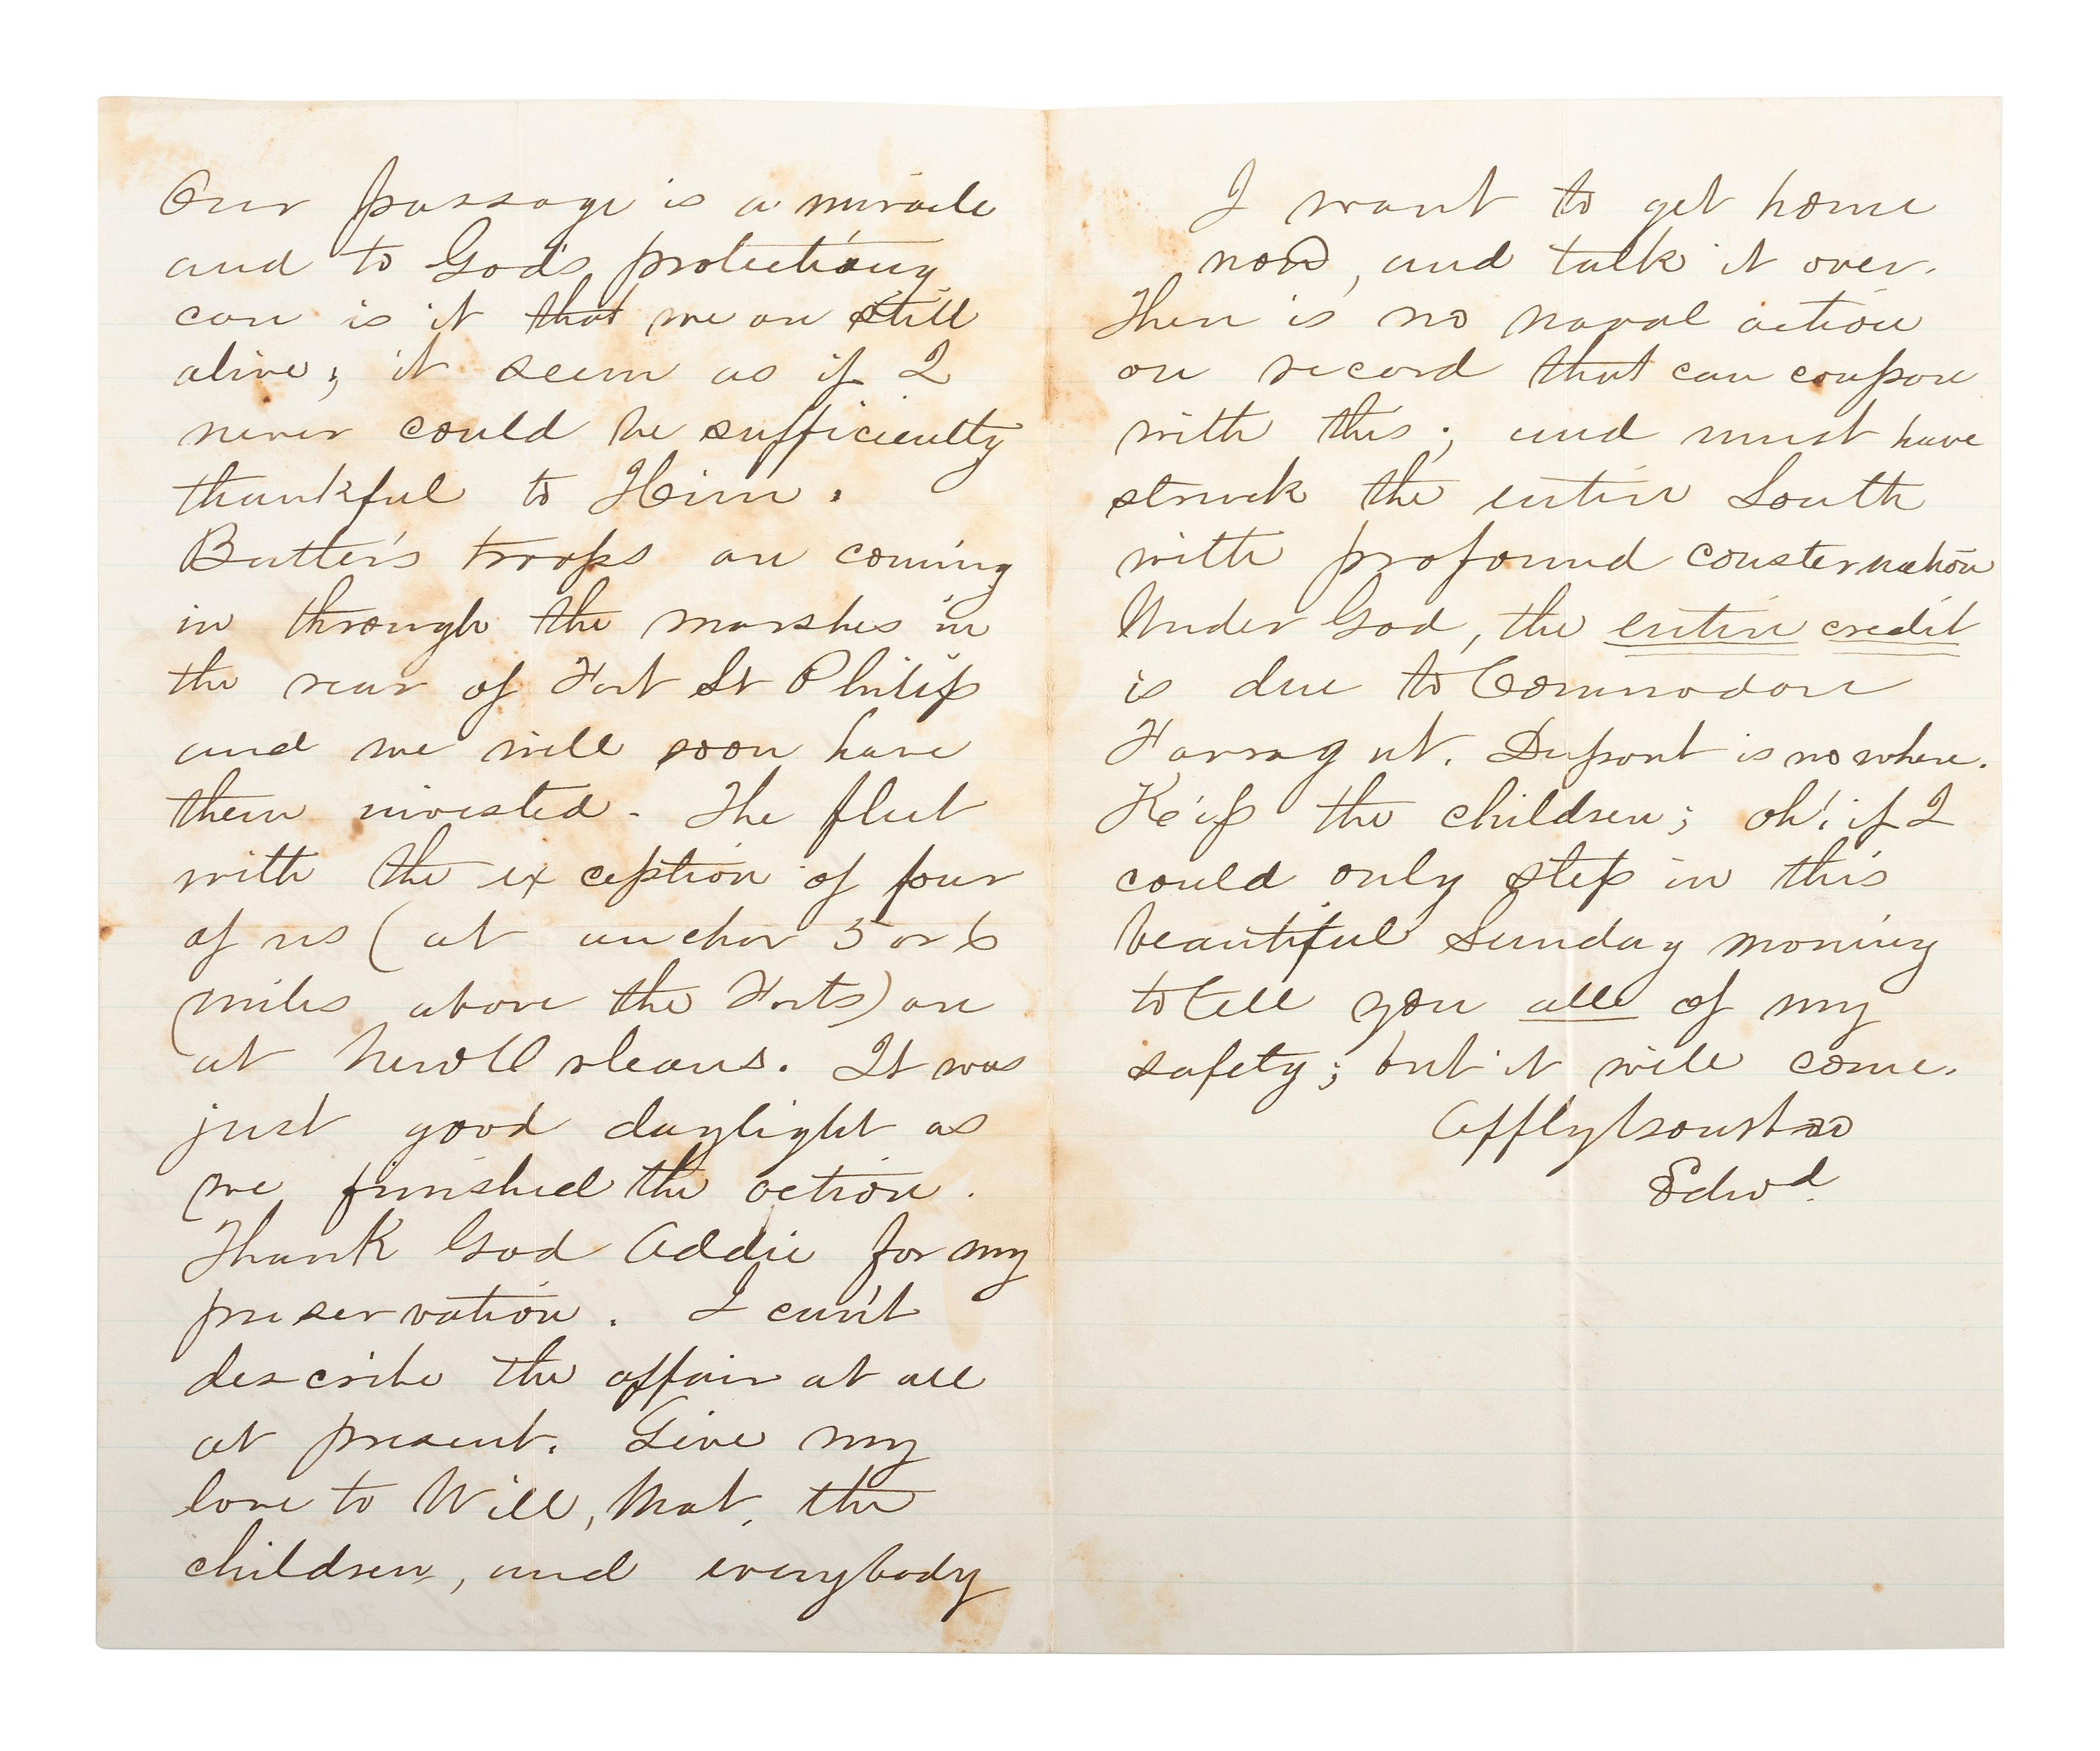 Our passage is a miracle
and to God's protecting
care is it that we are still
alive; it seem as if I
never could be sufficiently
thankful to Him.
Butler's troops are coming
in through the marshes in
the rear of Fort St Philip
and we will soon have
them invested. The fleet
with the exception of four
of us (at anchor 5 or 6
miles above the Forts) are
at New Orleans. It was
just good daylight as
we finished the action.
Thank God Addie for my
preservation. I can't
describe the affair at all
at present. Give my
love to Will, Mat, the
children, and everybody
I want to get home
now, and talk it over.
There is no naval action
on record that can compare
with this; and must have
struck the entire South
with profound consternation
Under God, the entire credit
is due to Commodore
Farragut. Dupont is no where.
Kiss the children; oh! if I
could only step in this
beautiful Sunday morning
to tell you all of my
safety; but it will come.
Affly
Edwd